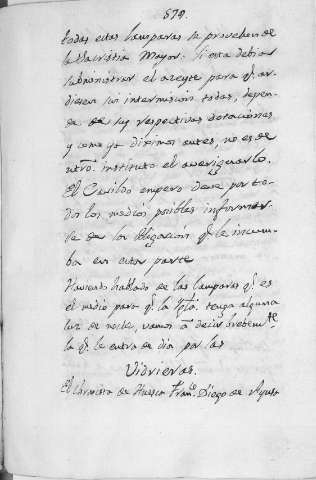 579.
todas estas lamparas se provehen de
la Sacristia Mayor. Si esta debia
subministrar el azeyte para q̃ ar-
diesen sin intermision todas, depen-
de de sus respectivas dotaciones
y como ya diximos antes, no es de
ntrõ. instituto el averiguarlo.
El Cavildo empero deve por to-
dos los medios posibles informar-
se de la obligación q̃ le incum-
ba en esta parte
Haviendo hablado de las lamparas q̃ es
el medio para q̃ la Iglã. tenga alguna
luz de noche, vamos à decir brebem.te
la q̃ le entra de dia por las
Vidrieras.
El Coronista de Huesca Fran.co Diego de Aynsa